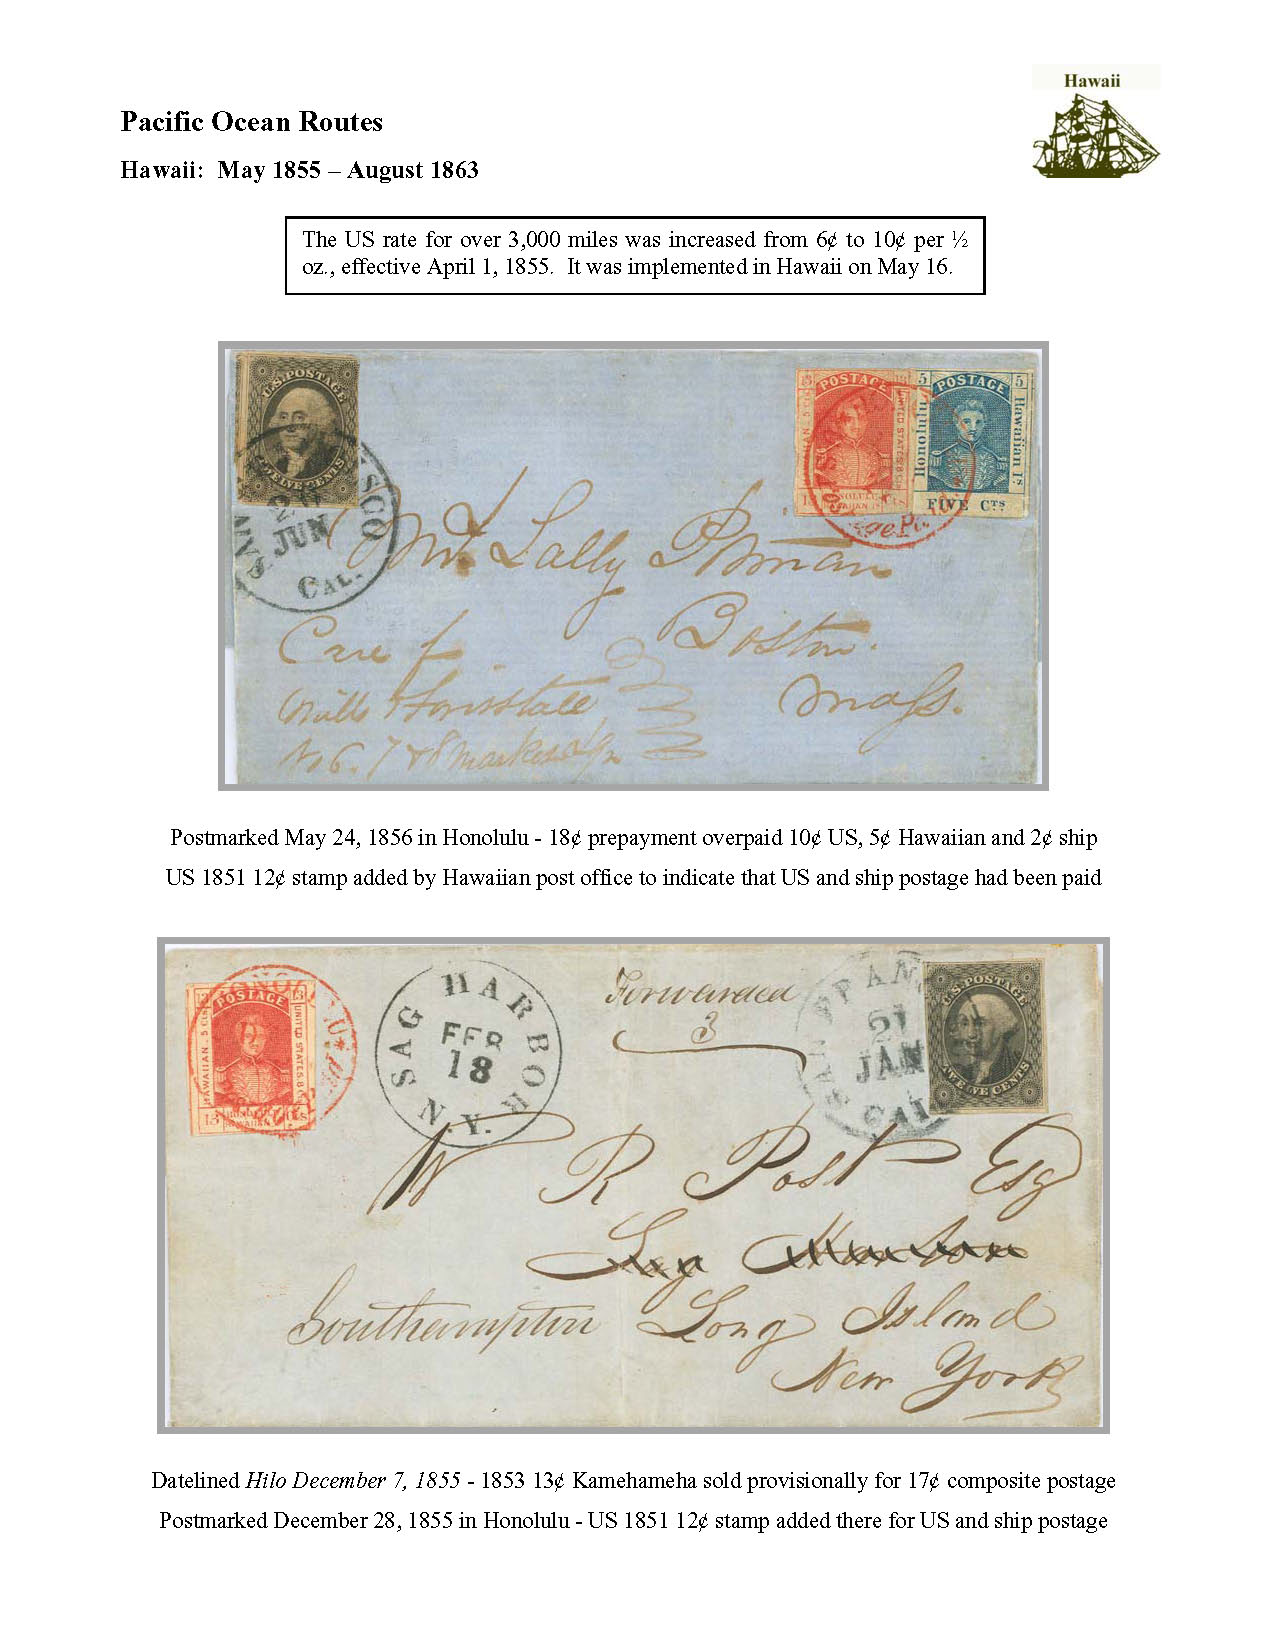 Hawaii
Pacific Ocean Routes
Hawaii: May 1855 – August 1863
The US rate for over 3,000 miles was increased from 6¢ to 10¢ per ½
oz., effective April 1, 1855. It was implemented in Hawaii on May 16.
U.S. POSTAGE
TWELVE CENTS
20
JUN
CAL.
13 POSTAGE 13
HAWAIIAN. 5 Cts
UNITED STATES 8 Cts
HONOLULU
HAWAIIAN Is
5 POSTAGE 5
Honolulu
Hawaiian Is.
FIVE CTS
Lally
Boston.
Care of
Mass.
Postmarked May 24, 1856 in Honolulu - 18¢ prepayment overpaid 10¢ US, 5¢ Hawaiian and 2¢ ship
US 1851 12¢ stamp added by Hawaiian post office to indicate that US and ship postage had been paid
13 POSTAGE 13
HAWAIIAN. 5 Cts
UNITED STATES 8
SAG HARBOR
FEB
18
N.Y.
Forwarded
3
SAN FRAN
21
JAN
CAL
U.S. POSTAGE
TWELVE CENTS
W R Post Esq
Sag Harbor
Southampton Long Island
New York
Datelined Hilo December 7, 1855 - 1853 13¢ Kamehameha sold provisionally for 17¢ composite postage
Postmarked December 28, 1855 in Honolulu - US 1851 12¢ stamp added there for US and ship postage